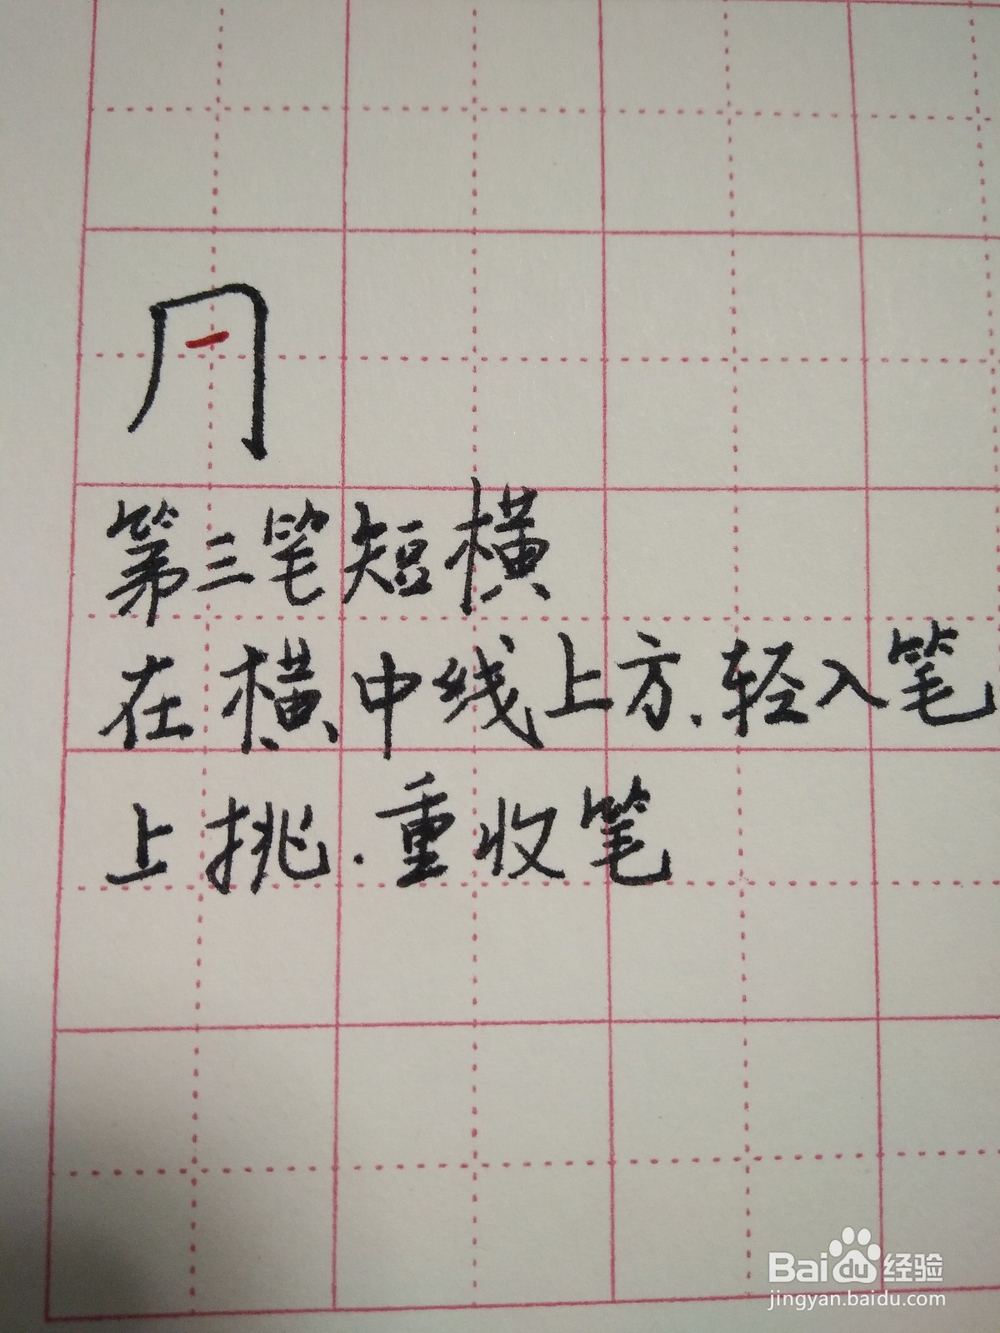 冂一
第三笔短横
在横中线上方.轻入笔
上挑.重收笔
Bai du 经验
jingyan.baidu.com